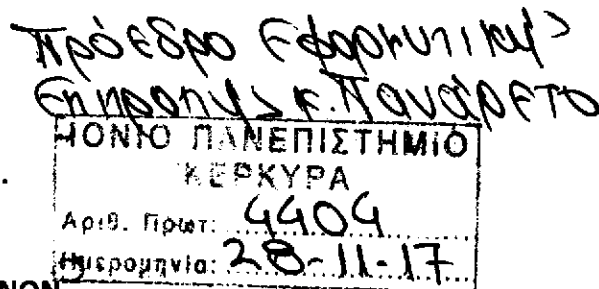 Πρόεδρο Εφορευτικής
Επιτροπής κ. Πανάρετο
ΙΟΝΙΟ ΠΑΝΕΠΙΣΤΗΜΙΟ
ΚΕΡΚΥΡΑ
Αριθ. Πρωτ: 4404
Ημερομηνία: 28-11-17